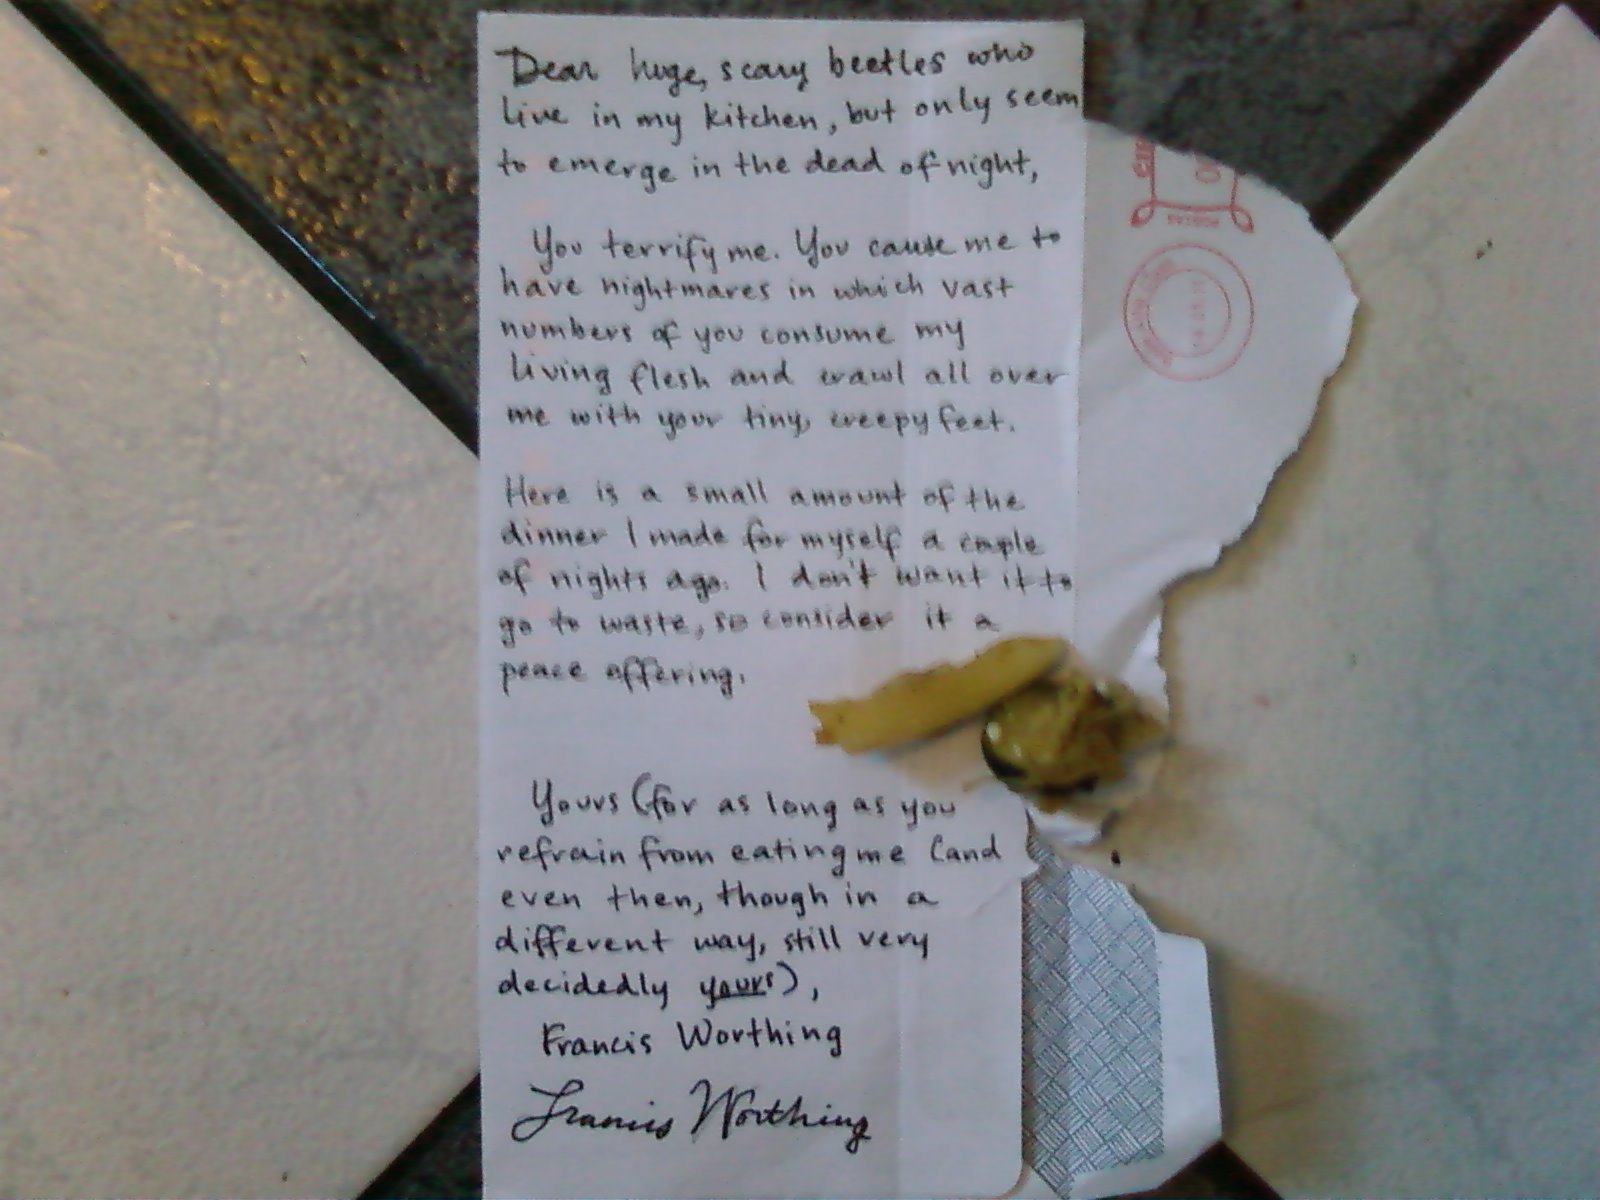 Dear huge, scary beetles who
live in my kitchen, but only seem
to emerge in the dead of night,
You terrify me. You cause me to
have nightmares in which vast
numbers of you consume my
living flesh and crawl all over
me with your tiny, creepy feet.
Here is a small amount of the
dinner I made for myself a couple
of nights ago. I don't want it to
go to waste, so consider it a
peace offering.
Yours (for as long as you
refrain from eating me (and
even then, though in a
different way, still very
decidedly yours),
Francis Worthing
Francis Worthing